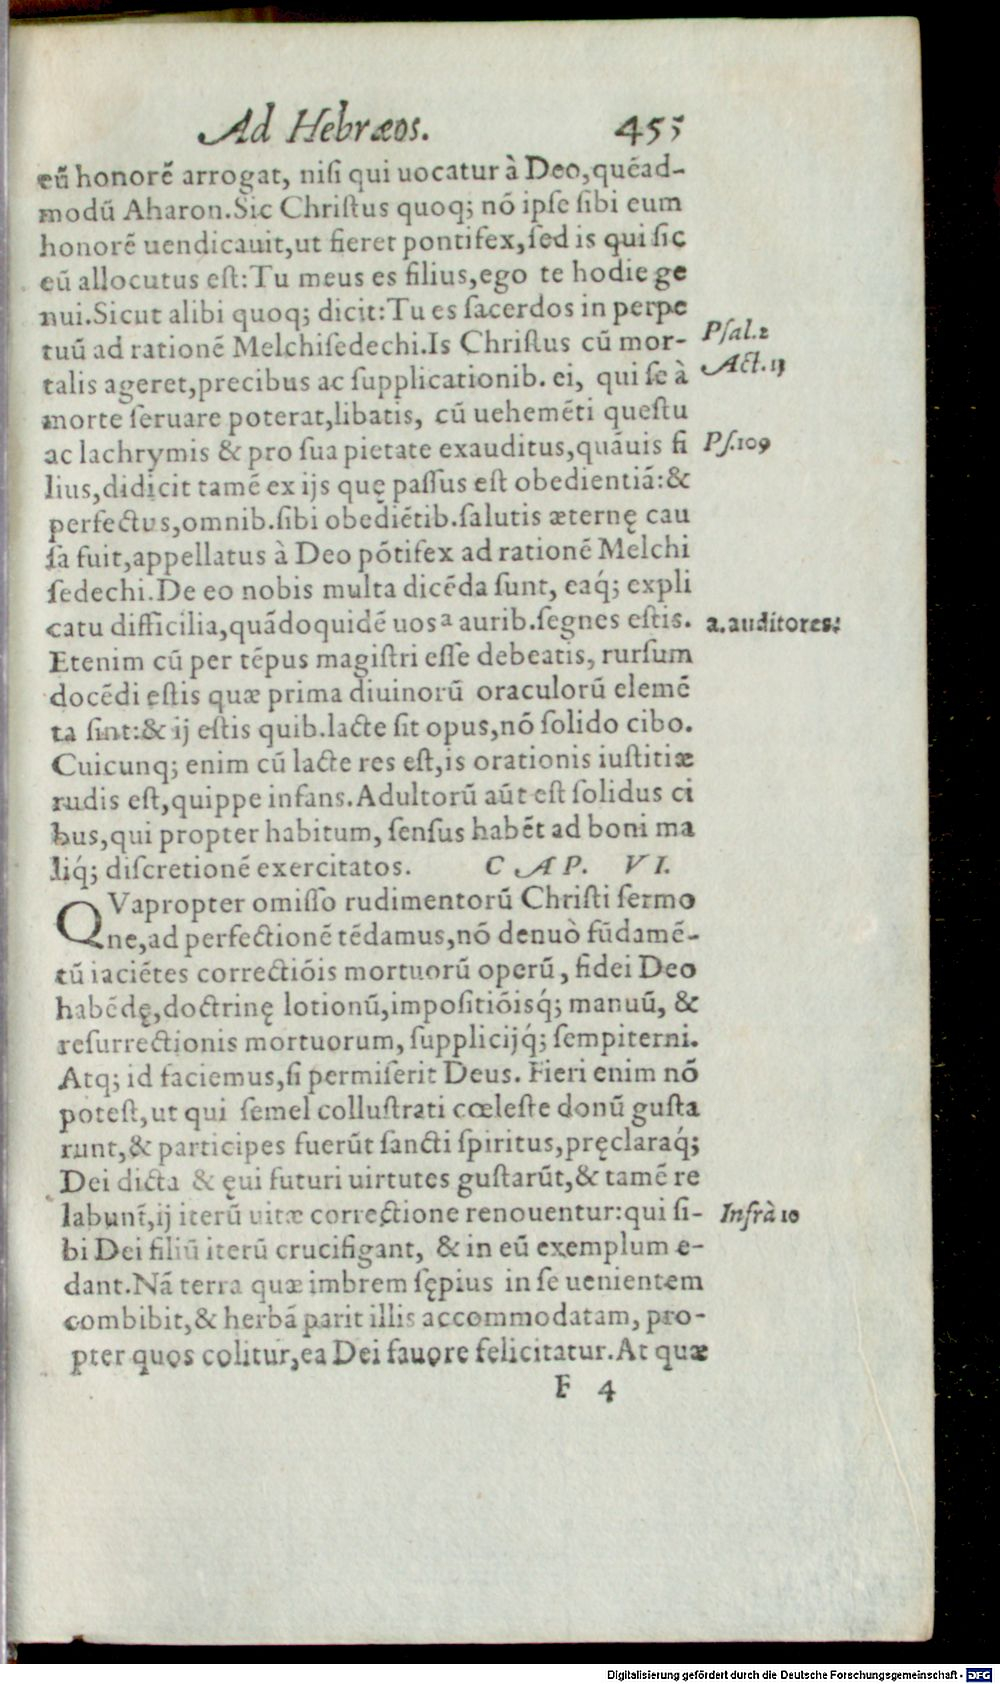 Ad Hebræos. 455
eũ honorẽ arrogat, nisi qui uocatur à Deo,quẽad-
modũ Aharon.Sic Christus quoq; nõ ipse sibi eum
honorẽ uendicauit,ut fieret pontifex,sed is qui sic
eũ allocutus est:Tu meus es filius,ego te hodie ge
nui.Sicut alibi quoq; dicit:Tu es sacerdos in perpe
tuũ ad rationẽ Melchisedechi.Is Christus cũ mor-
Psal.2
talis ageret,precibus ac supplicationib. ei, qui se à
Act.13
morte seruare poterat,libatis, cũ uehemẽti questu
ac lachrymis & pro sua pietate exauditus,quãuis fi
Ps.109
lius,didicit tamẽ ex ijs quę passus est obedientiã:&
perfectus,omnib.sibi obediẽtib.salutis æternę cau
sa fuit,appellatus à Deo põtifex ad rationẽ Melchi
sedechi.De eo nobis multa dicẽda sunt, eaq́; expli
catu difficilia,quãdoquidẽ uos ᵃ aurib.segnes estis.
a.auditores:
Etenim cũ per tẽpus magistri esse debeatis, rursum
docẽdi estis quæ prima diuinorũ oraculorũ elemẽ
ta sint:& ij estis quib.lacte sit opus,nõ solido cibo.
Cuicunq; enim cũ lacte res est,is orationis iustitiæ
rudis est,quippe infans.Adultorũ aũt est solidus ci
bus,qui propter habitum, sensus habẽt ad boni ma
liq́; discretionẽ exercitatos. CAP. VI.
QVapropter omisso rudimentorũ Christi sermo
ne,ad perfectionẽ tẽdamus,nõ denuò fũdamẽ-
tũ iaciẽtes correctiõis mortuorũ operũ, fidei Deo
habẽdę,doctrinę lotionũ,impositiõisq́; manuũ, &
resurrectionis mortuorum, supplicijq́; sempiterni.
Atq; id faciemus,si permiserit Deus. Fieri enim nõ
potest,ut qui semel collustrati cœleste donũ gusta
runt,& participes fuerũt sancti spiritus,pręclaraq́;
Dei dicta & ęui futuri uirtutes gustarũt,& tamẽ re
labunt̃,ij iterũ uitæ correctione renouentur:qui si-
Infrà 10
bi Dei filiũ iterũ crucifigant, & in eũ exemplum e-
dant.Nã terra quæ imbrem sępius in se uenientem
combibit,& herbã parit illis accommodatam, pro-
pter quos colitur,ea Dei fauore felicitatur.At quæ
F 4
Digitalisierung gefördert durch die Deutsche Forschungsgemeinschaft - DFG